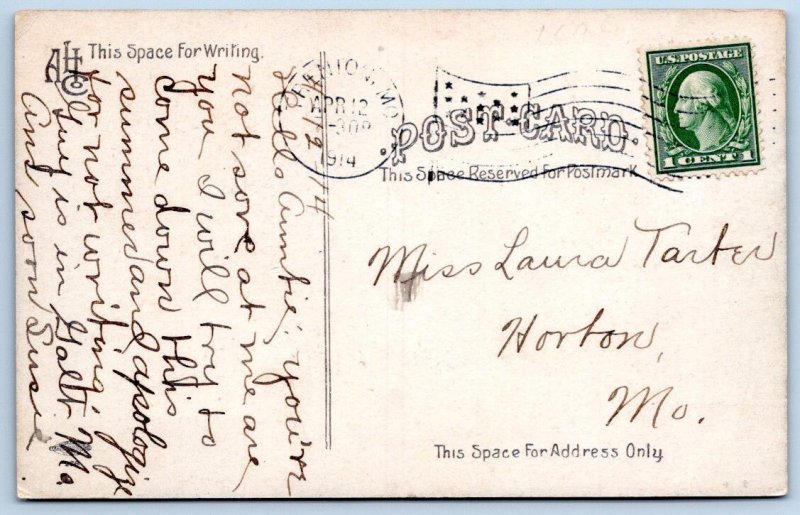 ALCo
This Space For Writing.
4/12/14
Hello Auntie; you're
not sore at me are
you I will try to
come down this
summer and apologize
for not writing,
Guy is in Galt Mo.
Ans soon Susie
TRENTON, MO.
APR 12
-30P
1914
POST CARD
This Space Reserved For Postmark
U.S. POSTAGE
1 CENT 1
Miss Laura Tarter
Horton,
Mo.
This Space For Address Only